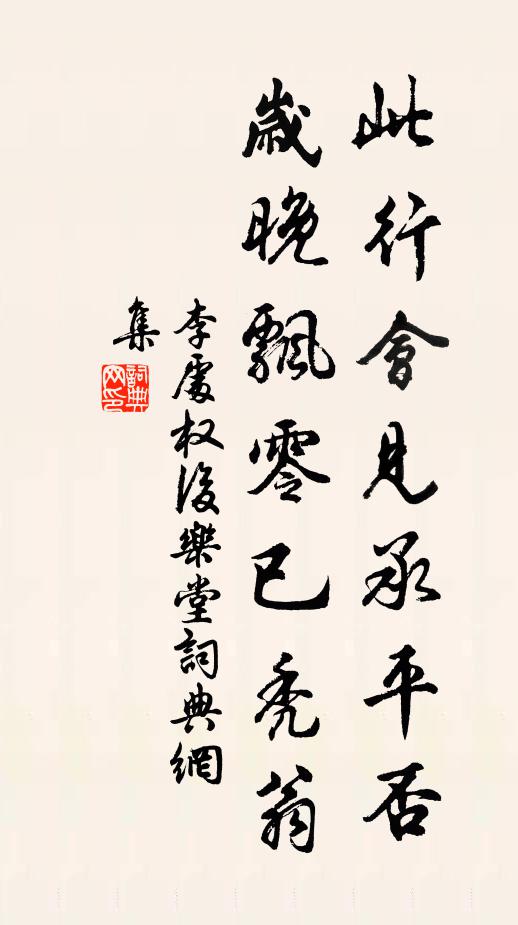 此行會見承平否
歲晚飄零已禿翁
李處权後樂堂詞典網
集
詞典
网印